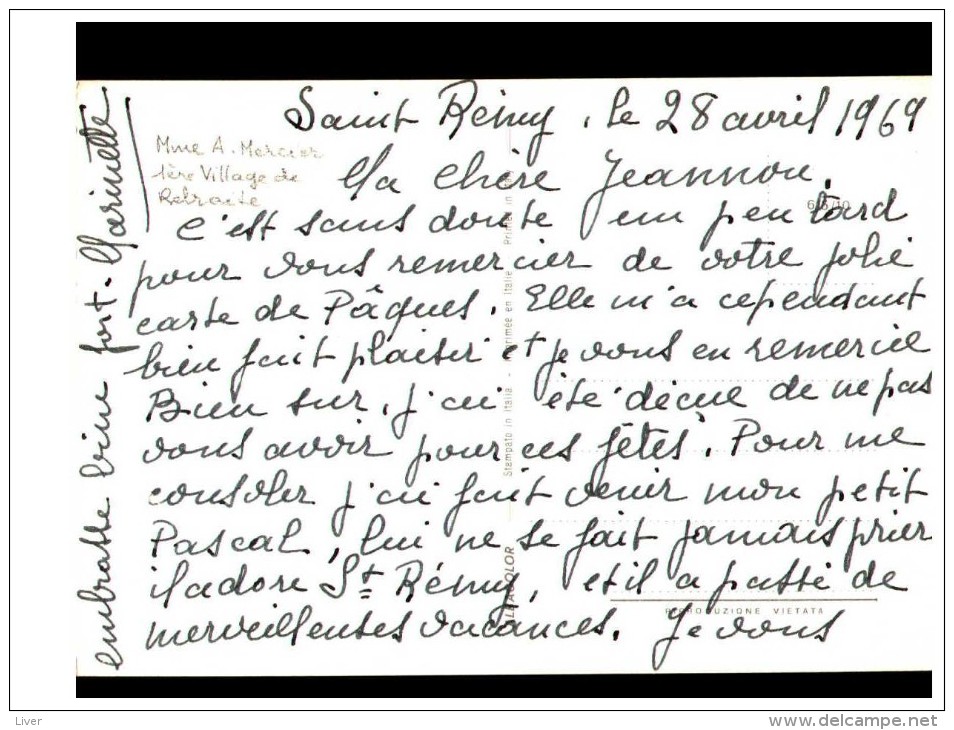 Saint Rémy, le 28 avril 1969
Mme A. Mercier
1ère Village de
Retraite
Ma Chère Jeannou,
c'est sans doute un peu tard
pour vous remercier de votre jolie
carte de Pâques. Elle m'a cependant
bien fait plaisir et je vous en remercie
Bien sur, j'ai été déçue de ne pas
vous avoir pour ces fêtes. Pour me
consoler j'ai fait venir mon petit
Pascal, lui ne se fait jamais prier
il adore St Rémy, et il a passé de
merveilleuses vacances. Je vous
embrasse bien fort. Marinette
Stampato in Italia - Imprimée en Italie - Printed in
RIPRODUZIONE VIETATA
Liver
www.delcampe.net